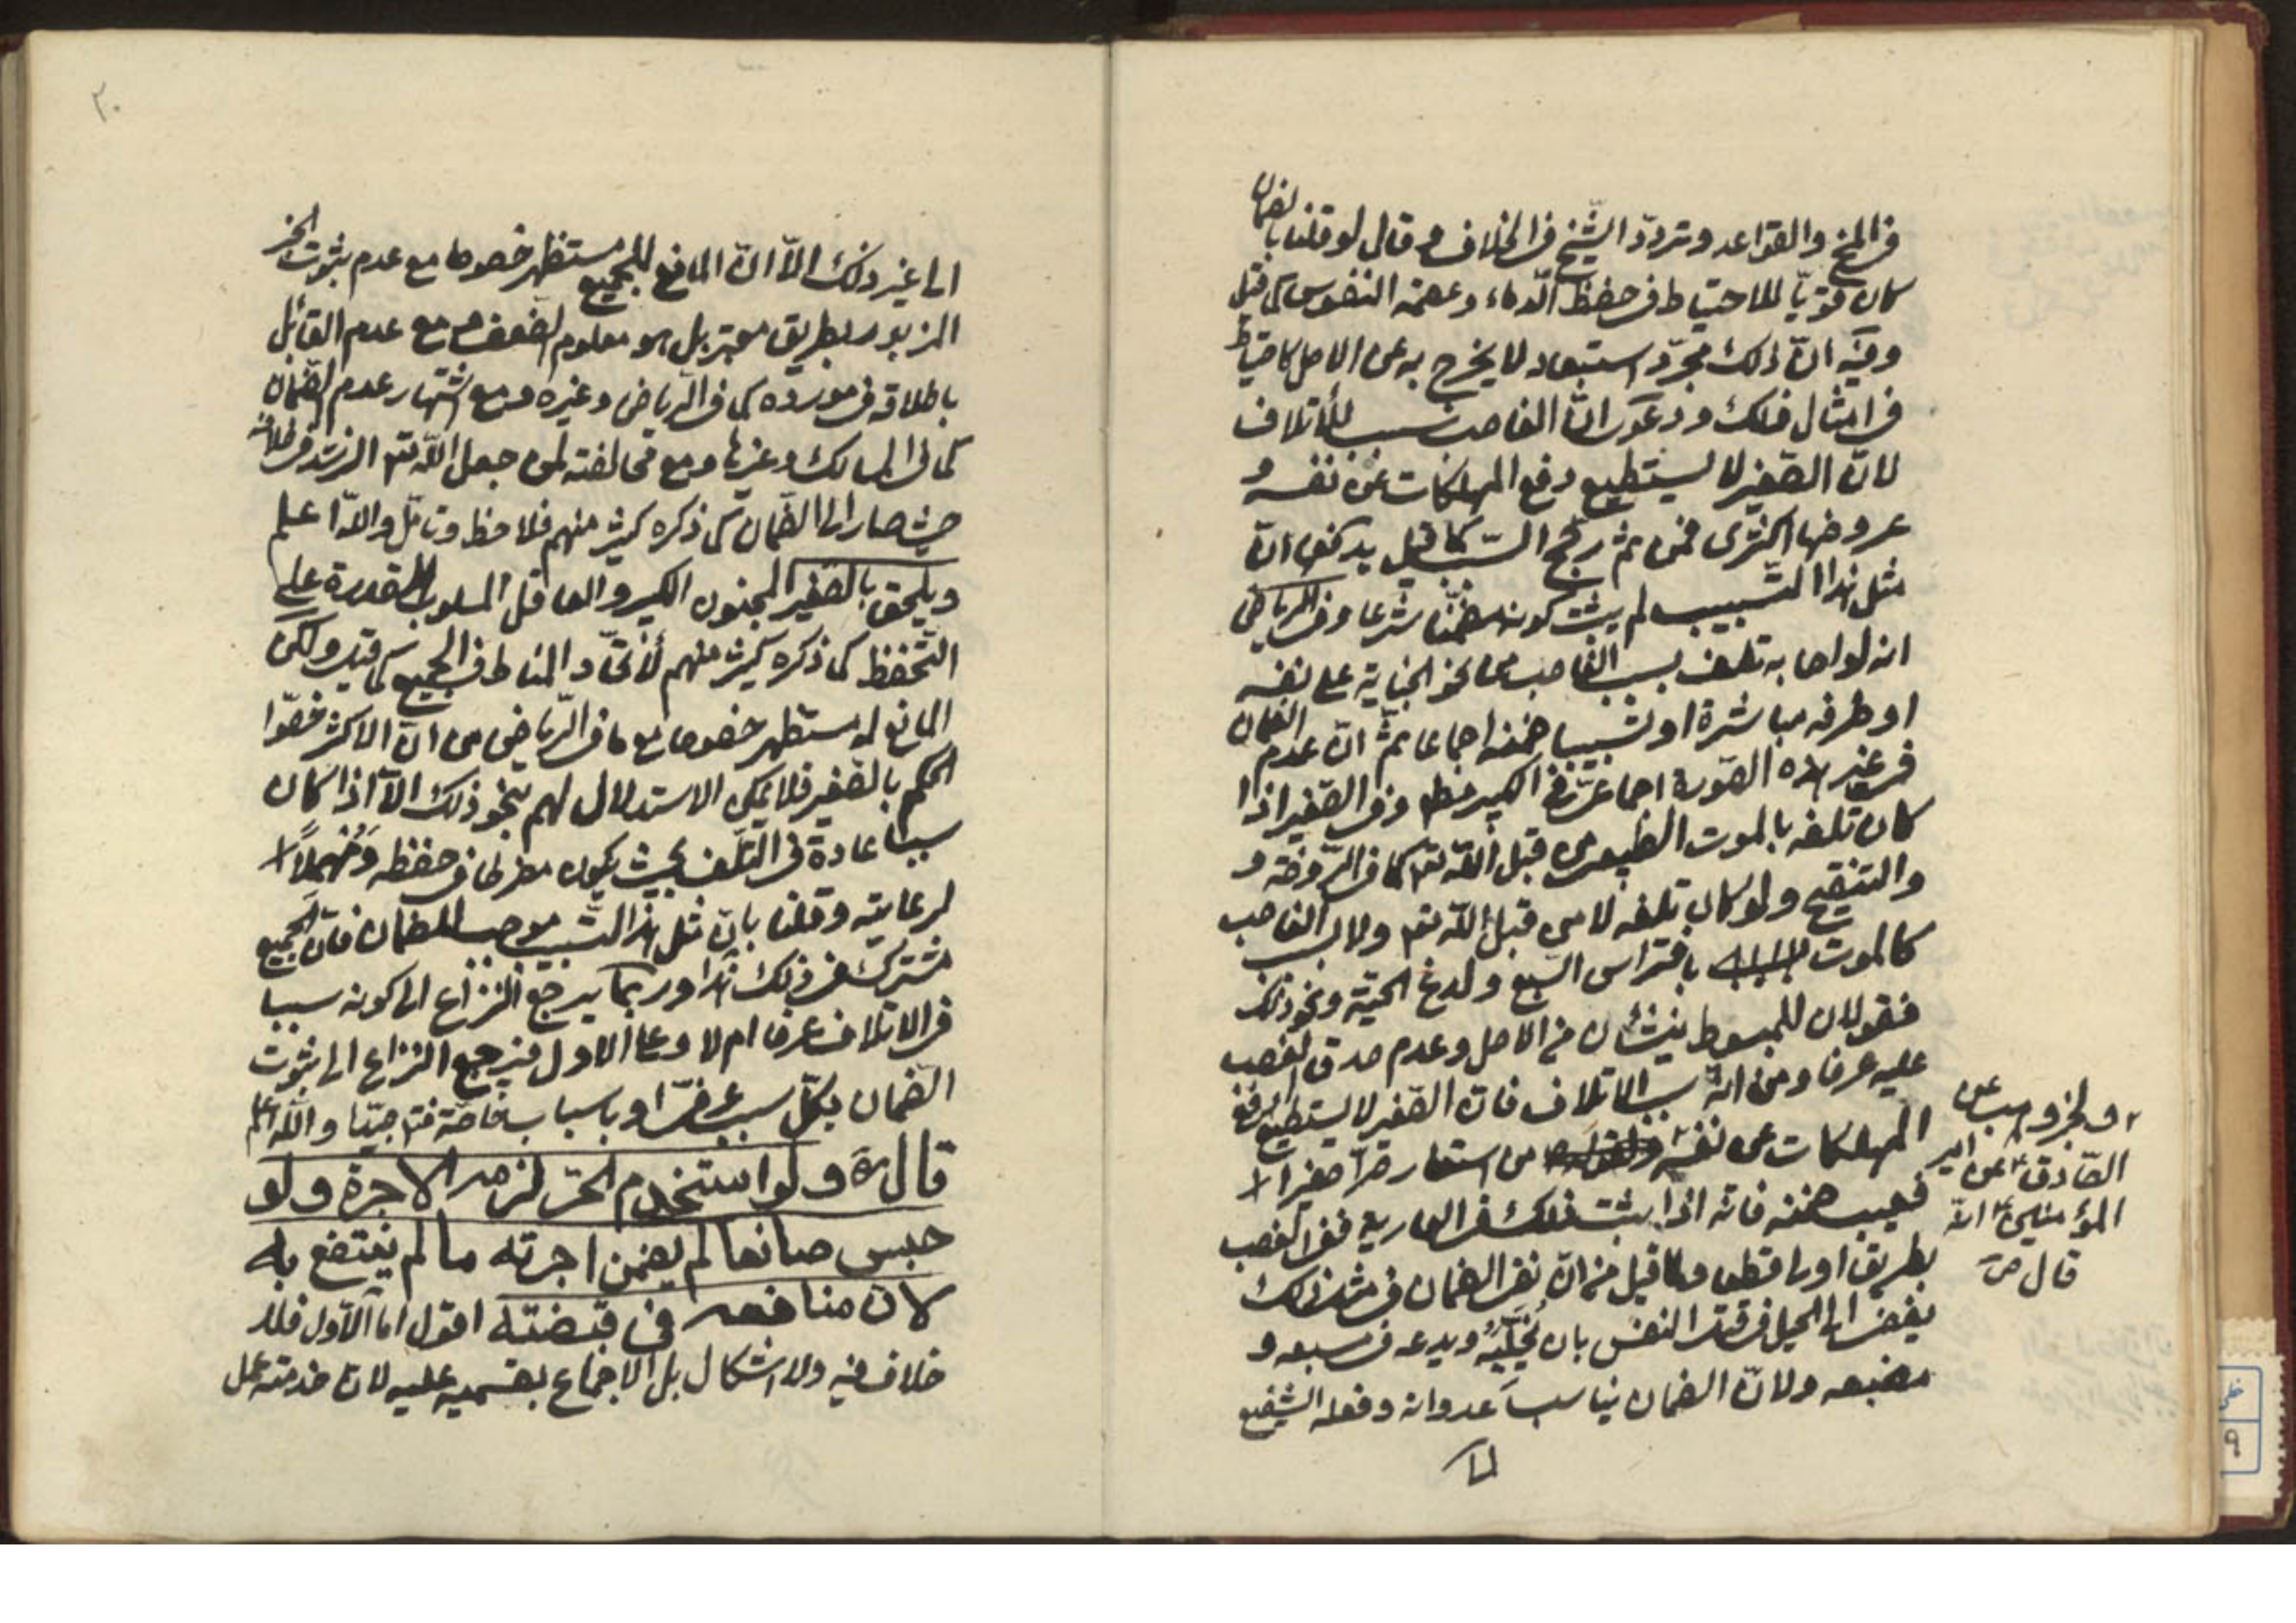 في المتن والقواعد وتردّد الشّيخ في الخلاف وقال لو قلنا بالضمان
كان قويّا للاحتياط في حفظ الدّماء وعصمة النفوس كما قيل
وفيه انّ ذلك مجرّد استبعاد لا يخرج به عن الاصل كاحتياط
في امثال ذلك ودعوى انّ الغاصب سبب للأتلاف
لانّ الصّغير لا يستطيع دفع المهلكات عن نفسه و
عروضها اكثرى فمن ثمّ رجّح السّبب كما قيل يدفعها انّ
مثل هذا التّسبيب لم يثبت كونه مضمّنا شرعا وفي الرياض
انه لو اصابه تلف بسبب الغاصب من نحو الجناية على نفسه
او طرفه مباشرة او تسبيبا ضمنه اجماعا ثمّ انّ عدم الضمان
في غير هذه الصّورة اجماعىّ في الكبير مطلقا وفي الصّغير اذا
كان تلفه بالموت الطّبيعى من قبل اللّه تع كما في الرّوضة و
والتنقيح ولو كان تلفه لا من قبل اللّه تع ولا بسبب الغاصب
كالموت بافتراس السّبع ولدغ الحيّة ونحو ذلك
فقولان للمبسوط ينشئان من الاصل وعدم صدق الغصب
عليه عرفا ومن انّه سبب الاتلاف فانّ الصّغير لا يستطيع الدفع
المهلكات عن نفسه من استعار حرّا صغيرا
فعيب ضمنه فانّه اذا ثبت ذلك في العارية ففى الغصب
بطريق اولى قطعا ولما قيل من انّ نفى الضمان في مثل ذلك
يفضى الى الحيل في قتل النفس بان يخلّيه ويدعه في مسبعه و
مضبعه ولانّ الضمان يناسب عدوانه وفعله الشنيع
الى
ولخبر وهب عن
الصّادق ع عن امير
المؤمنين ع انّه
قال ص
٢٠
الى غير ذلك الاّ انّ المانع للجميع مستظهر خصوصا مع عدم ثبوت الخبر
المزبور بطريق معتبر بل هو معلوم الضعف ومع عدم القائل
باطلاقه في مورده كما في الرّياض وغيره ومع اشتهار عدم الضّمان
كما في المسالك وغيرها ومع مخالفته لمن جعل اللّه تع الرشد في خلافه
حيث صار الى الضّمان كما ذكره كثير منهم فلاحظ وتأمّل واللّه اعلم
ويلحق بالصّغير المجنون الكبير والعاقل المسلوب القدرة على
التّحفّظ كما ذكره كثير منهم لأتّحاد المناط في الجميع كما قيل ولكن
المانع له مستظهر خصوصا مع ما في الرّياض من انّ الاكثر خصّوا
الحكم بالصّغير فلا يمكن الاستدلال لهم بنحو ذلك الاّ اذا كان
سببا عادة في التّلف بحيث يكون مفرطا في حفظه ومهملا
لرعايته وقلنا بانّ مثل هذا السّبب موجب للضمان فانّ الجميع
مشترك في ذلك هذا وربّما يرجع النّزاع الى كونه سببا
في الاتلاف عرفا ام لا وعلى الاول فيرجع النزاع الى ثبوت
الضّمان بكلّ سبب عرفىّ او باسباب خاصّة فتأمّل جيّدا واللّه اعلم
قال ره ولو استخدم الحرّ لزمه الاجرة ولو
حبس صانعا لم يضمن اجرته ما لم ينتفع به
لانّ منافعه في قبضته اقول امّا الاوّل فلا
خلاف فيه ولا اشكال بل الاجماع بقسميه عليه لانّ خدمته عمل